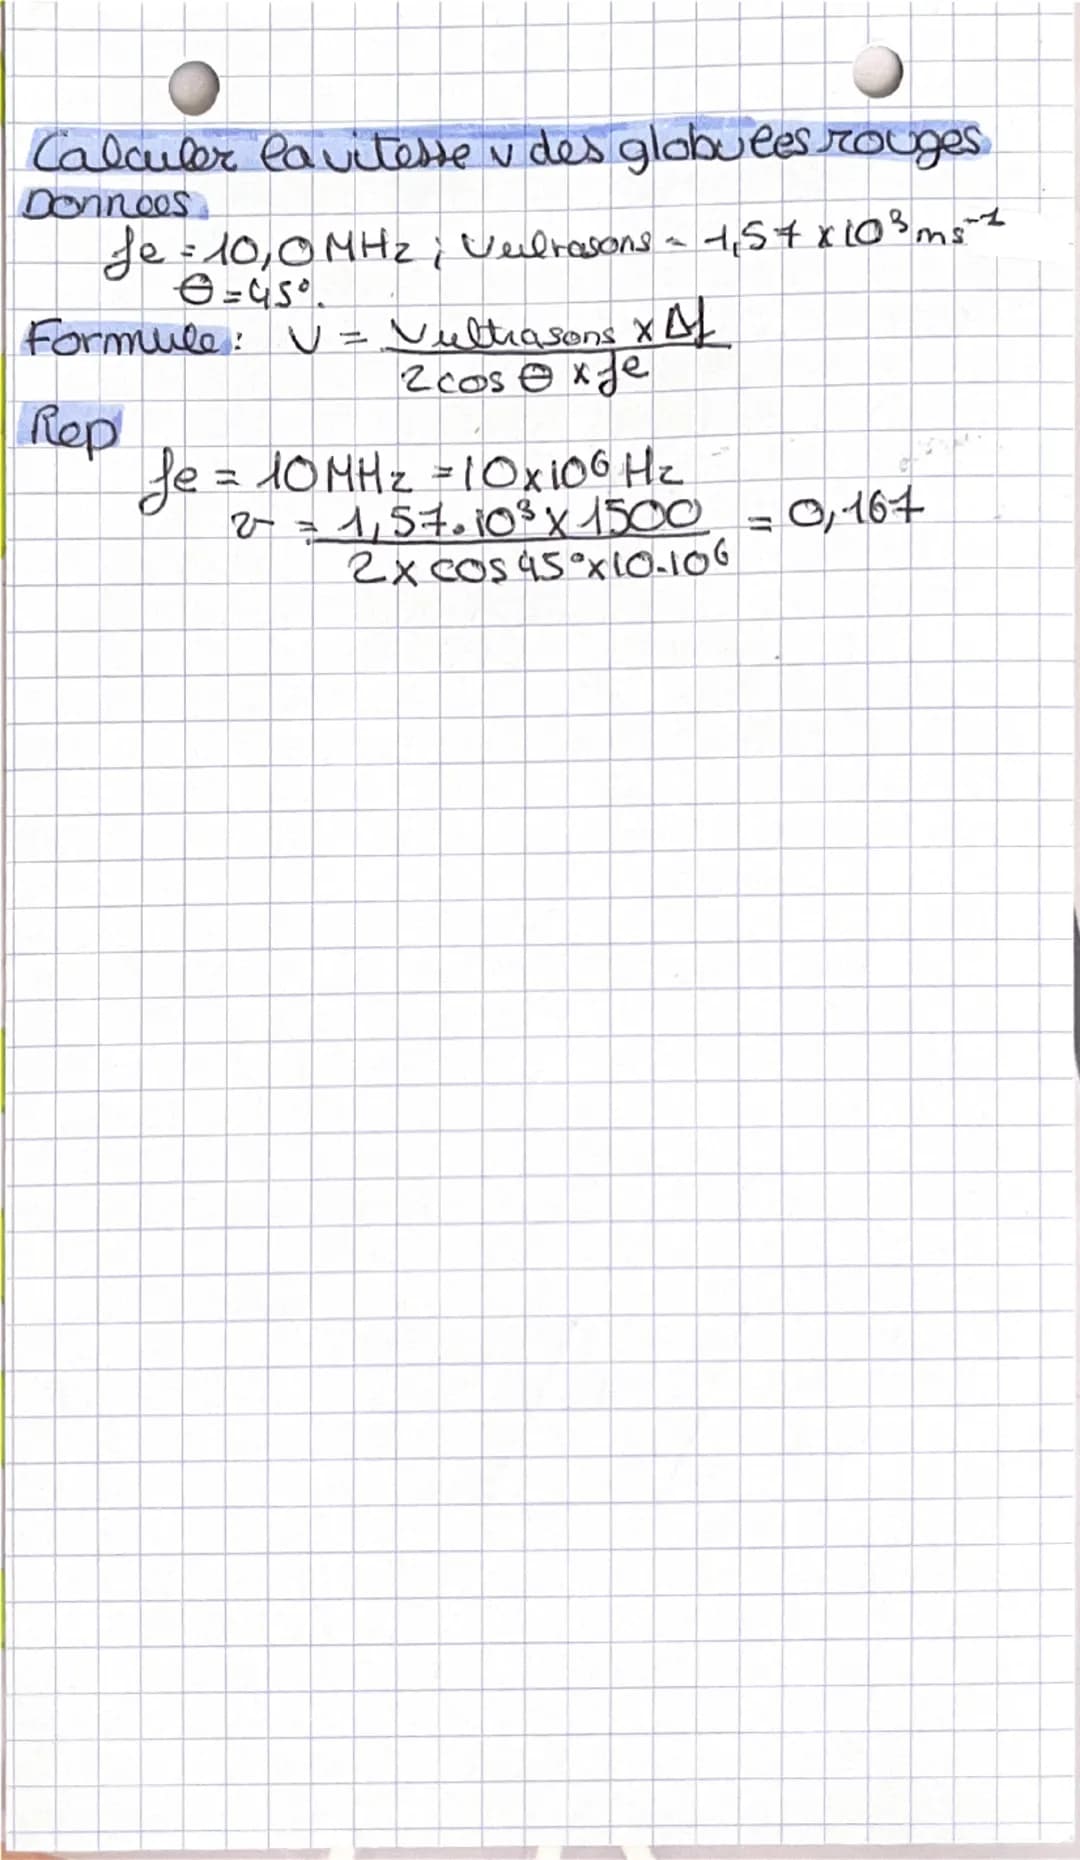 Calculer la vitesse v des globules rouges
Donnees
fe = 10,0 MHz ; Vultrasons = 1,57 x 10³ ms⁻¹
θ = 45°.
Formule : V = Vultrasons x Δf
2 cos θ x fe
Rep
fe = 10 MHz = 10 x 10⁶ Hz
v = 1,57.10³ x 1500 = 0,167
2 x cos 45° x 10.10⁶